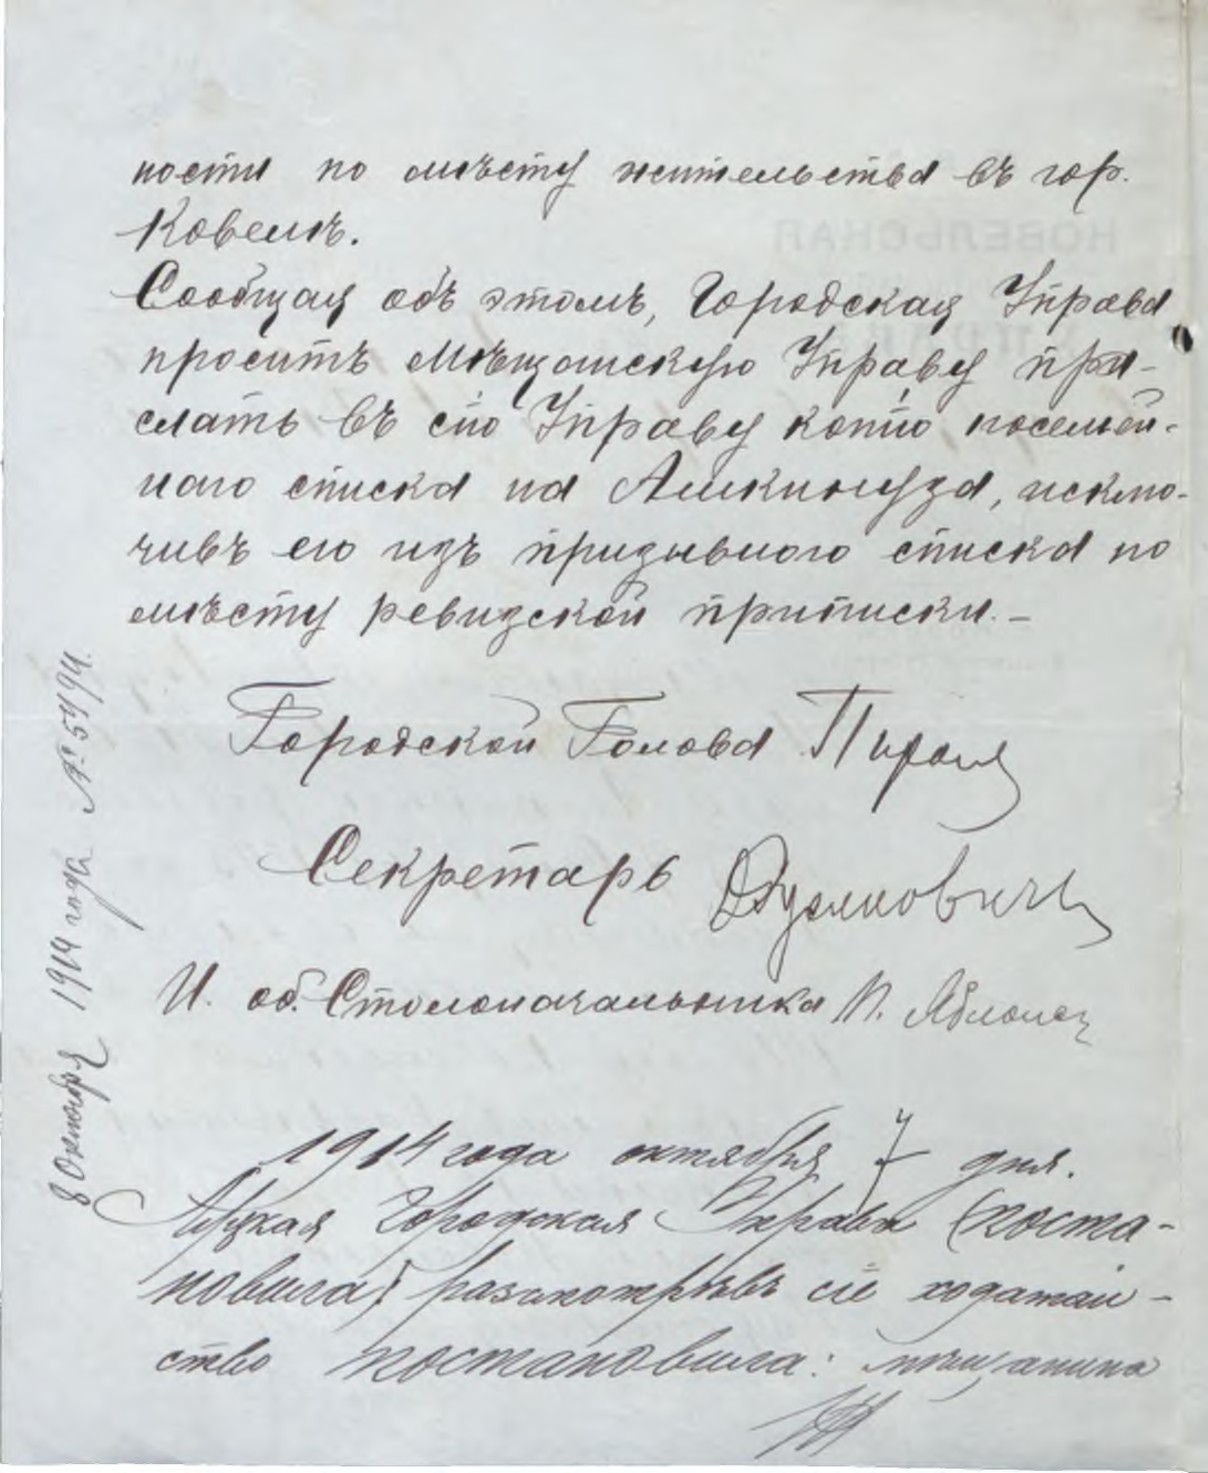 ности по мѣсту жительства въ гор.
Ковелѣ.
Сообщая объ этомъ, Городская Управа
проситъ Мѣщанскую Управу при-
слать въ сію Управу копію посемей-
наго списка на Ашкинузда, исклю-
чивъ его изъ призывного списка по
мѣсту ревизской приписки.-
Городской Голова
Секретарь
И. об. Столоначальника
8 Октября 1914 года № 5494.
1914 года октября 7 дня.
Луцкая Городская Управа (поста-
новила) разсмотрѣвъ сіе ходатай-
ство постановила: мѣщанина